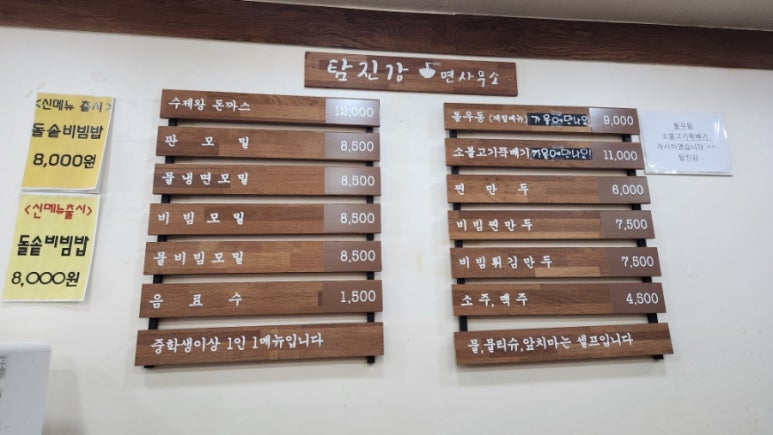 탐진강 면사무소
<신메뉴 출시>
돌솥비빔밥
8,000원
<신메뉴출시>
돌솥비빔밥
8,000원
수제왕 돈까스 12,000
판 모밀 8,500
물냉면모밀 8,500
비빔모밀 8,500
물비빔모밀 8,500
음료수 1,500
중학생이상 1인 1메뉴입니다
불우동 (계절메뉴) 겨울에만나요! 9,000
소불고기뚝배기 겨울에만나요! 11,000
찐만두 6,000
비빔찐만두 7,500
비빔튀김만두 7,500
소주,맥주 4,500
물,물티슈,앞치마는 셀프입니다
불우동
소불고기뚝배기
개시하였습니다 ^^
탐진강